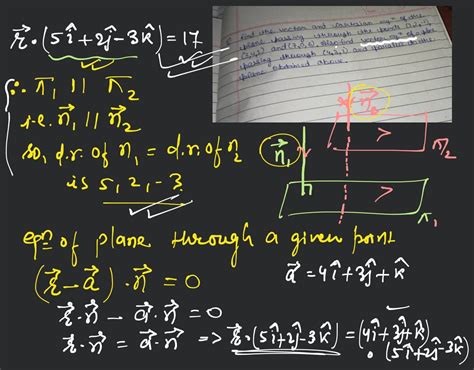 r⃗ · (5î+2ĵ-3k̂) = 17
find the vector and cartesian eqn of the
plane passing through the points
(3,4,1) and
passing through (4,3,1) and parallel to the
plane obtained above.
∵ π₁ || π₂
i.e. n⃗₁ || n⃗₂
so, d.r. of n₁ = d.r. of n₂
is 5, 2, -3
n⃗₂
n⃗₁
π₂
π₁
eqn of plane through a given point
(r⃗ - a⃗) · n⃗ = 0
a⃗ = 4î+3ĵ+k̂
r⃗·n⃗ - a⃗·n⃗ = 0
r⃗·n⃗ = a⃗·n⃗ => r⃗·(5î+2ĵ-3k̂) = (4î+3ĵ+k̂)
·(5î+2ĵ-3k̂)